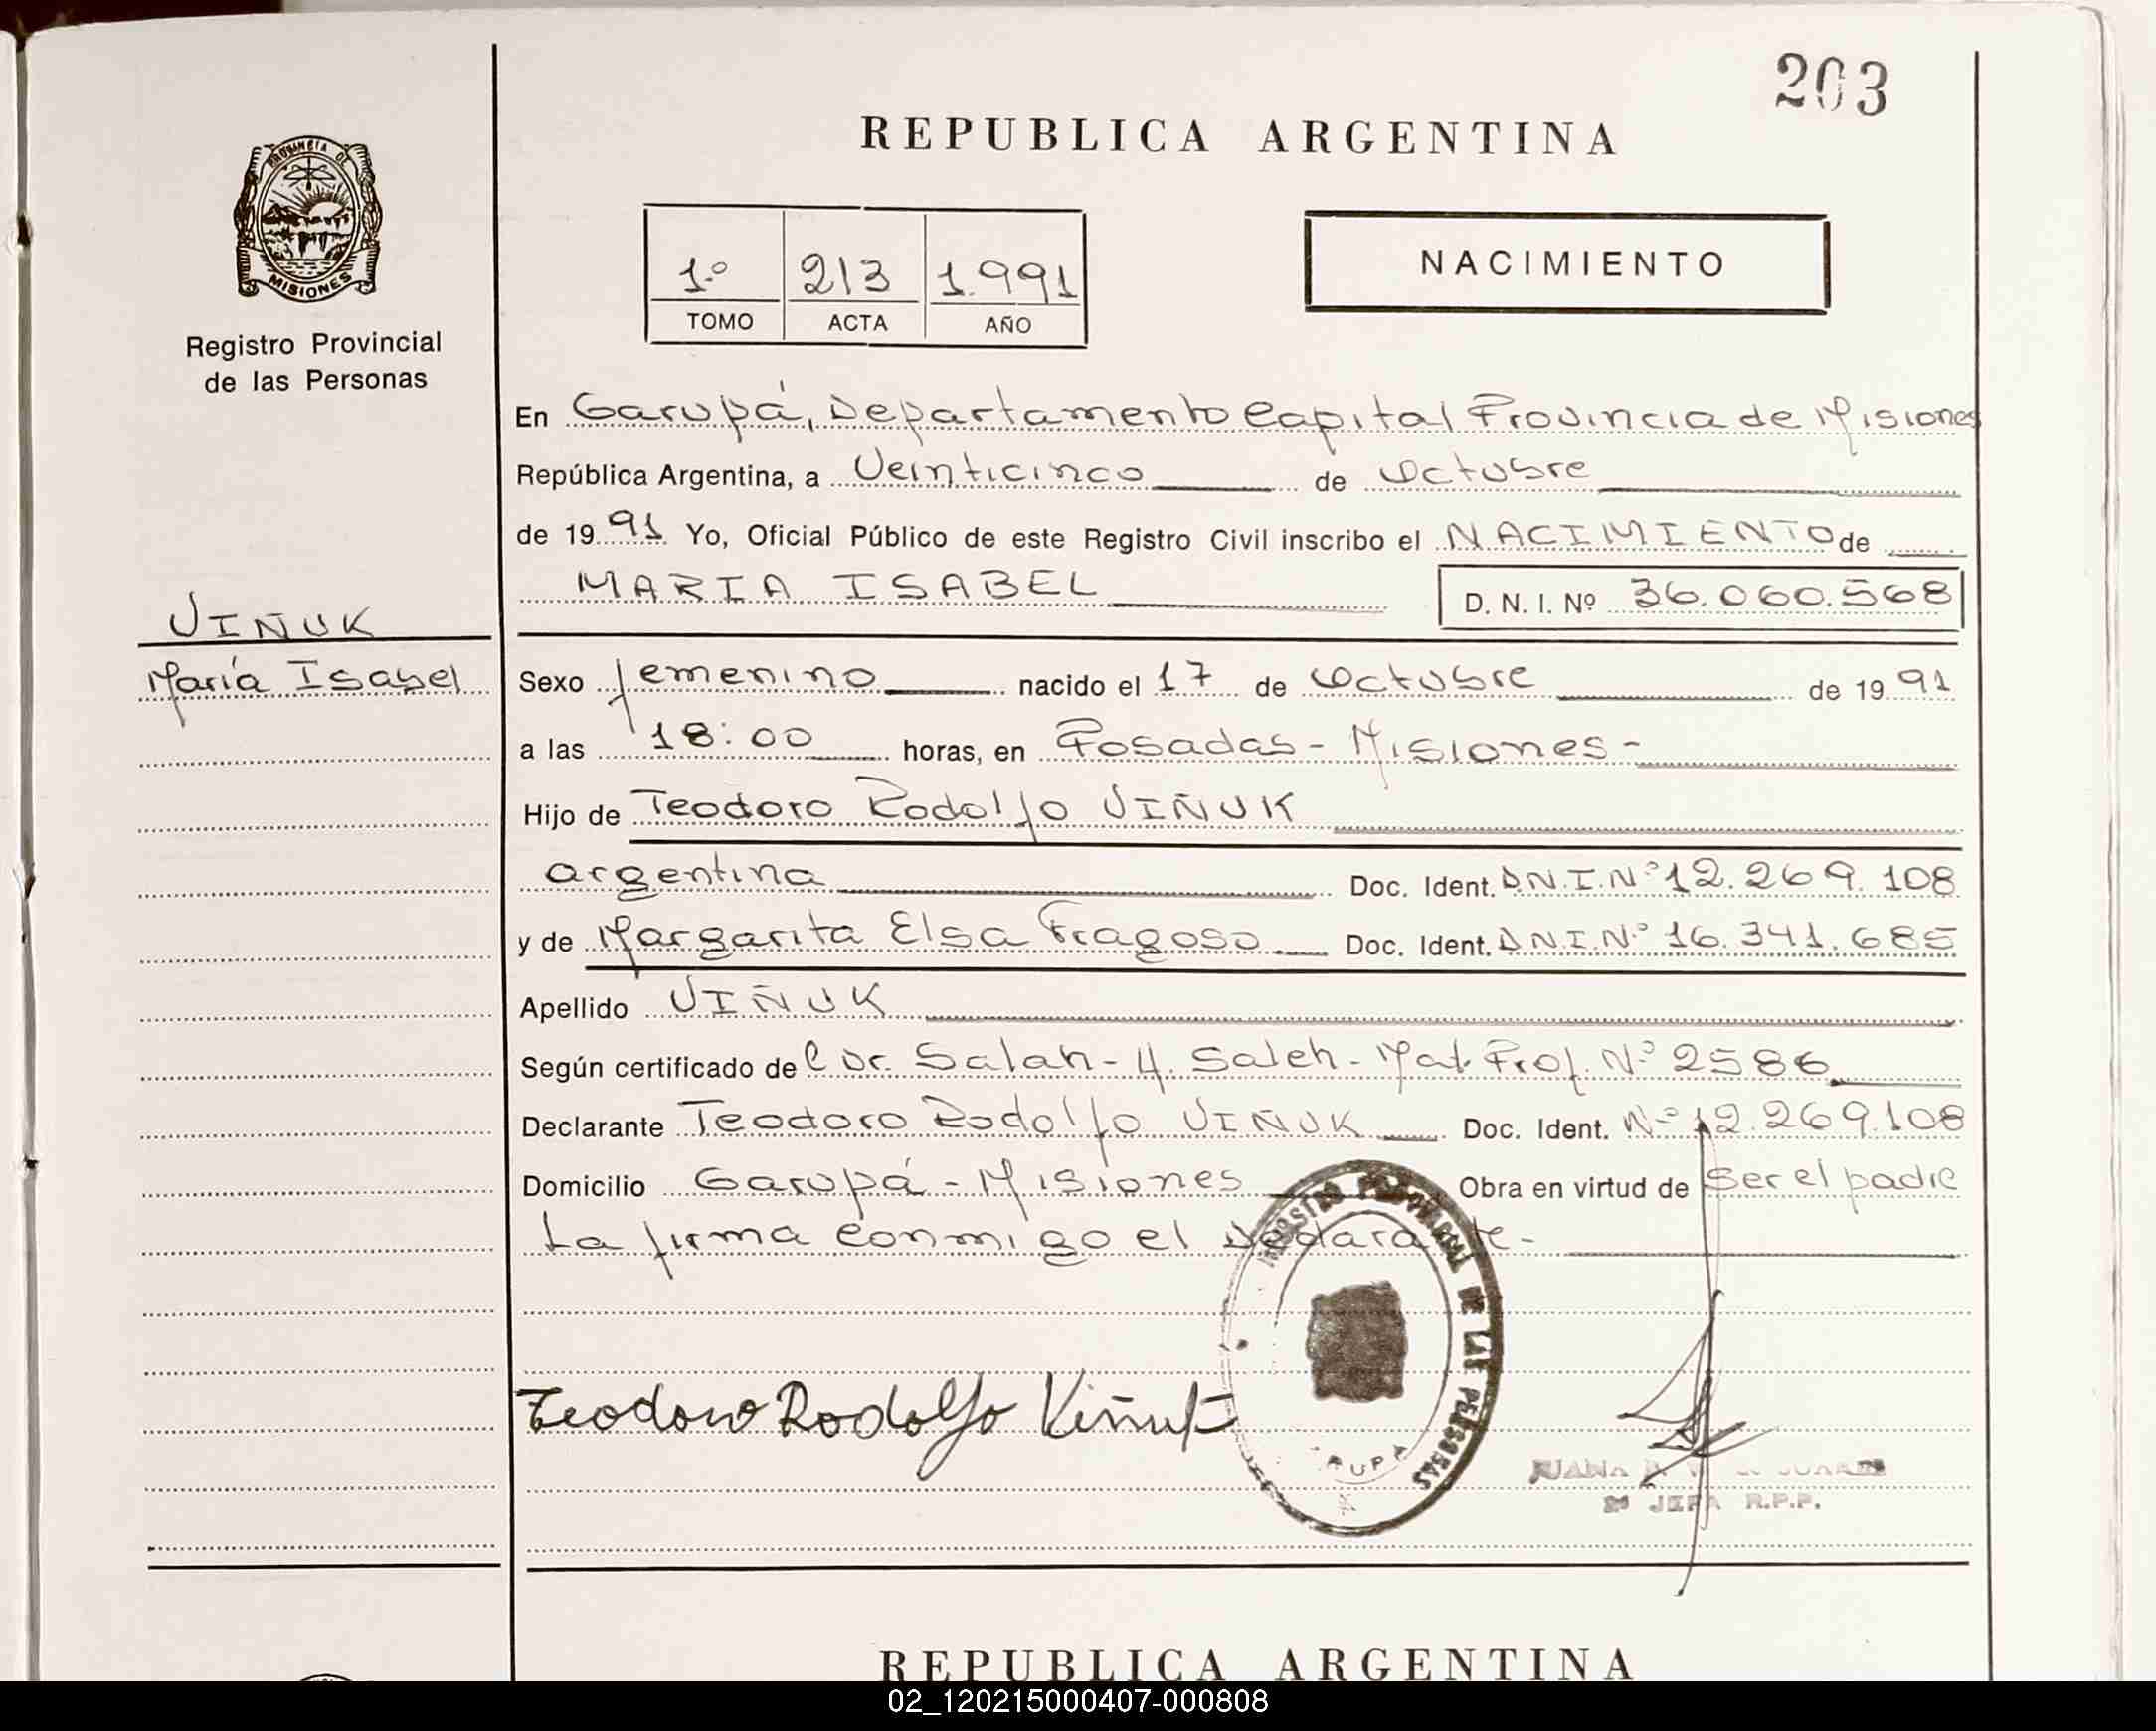 203
REPUBLICA ARGENTINA
PROVINCIA DE
MISIONES
Registro Provincial
de las Personas
1º 213 1.991
TOMO ACTA AÑO
NACIMIENTO
En Garupá, Departamento Capital Provincia de Misiones
República Argentina, a Veinticinco de Octubre
de 1991 Yo, Oficial Público de este Registro Civil inscribo el NACIMIENTO de
MARIA ISABEL D. N. I. Nº 36.060.568
VIÑUK
María Isabel
Sexo femenino nacido el 17 de Octubre de 1991
a las 18:00 horas, en Posadas - Misiones -
Hijo de Teodoro Rodolfo VIÑUK
argentina Doc. Ident. D.N.I.Nº 12.269.108
y de Margarita Elsa Fragoso Doc. Ident. D.N.I.Nº 16.341.685
Apellido VIÑUK
Según certificado de Dr. Salah - H. Saleh - Mat. Prof. Nº 2586
Declarante Teodoro Rodolfo VIÑUK Doc. Ident. Nº 12.269.108
Domicilio Garupá - Misiones Obra en virtud de Ser el padre
La firma conmigo el Declarante -
REGISTRO PROVINCIAL DE LAS PERSONAS
Teodoro Rodolfo Viñuk
JUANA
2º JEFA R.P.P.
REPUBLICA ARGENTINA
02_120215000407-000808